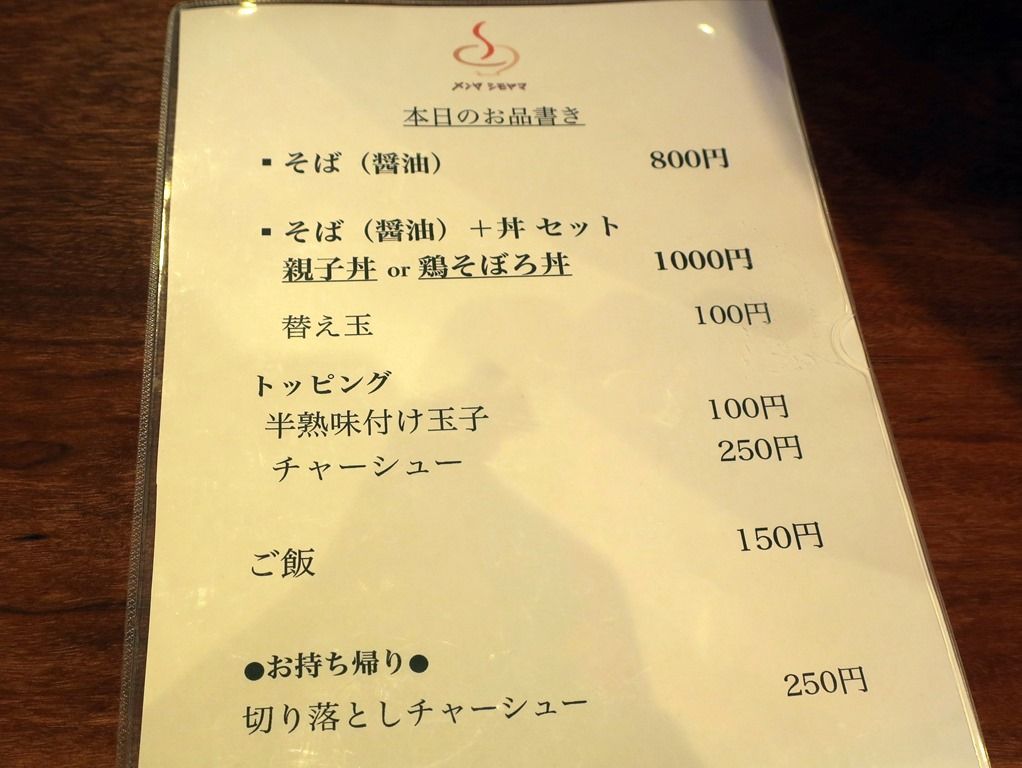 メンマ シモヤマ
本日のお品書き
▪ そば（醤油） 800円
▪ そば（醤油）＋丼 セット
親子丼 or 鶏そぼろ丼 1000円
替え玉 100円
トッピング
半熟味付け玉子 100円
チャーシュー 250円
ご飯 150円
●お持ち帰り●
切り落としチャーシュー 250円